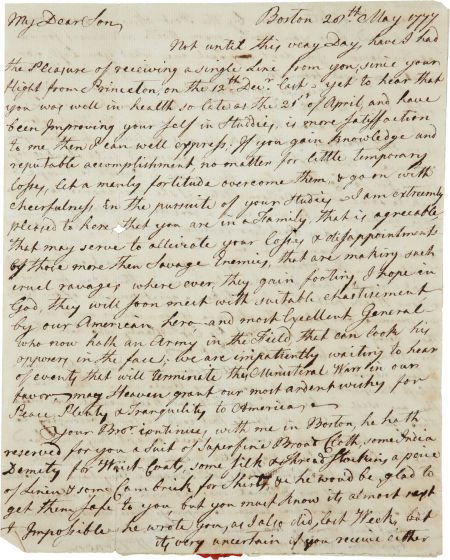 My Dear Son, Boston 28th May 1777
Not until this very Day, have I had
the Pleasure of receiving a single Line from you, since your
flight from Princeton, on the 12th Decr. last - yet to hear that
you was well in health, so late as the 21st of April, and have
been Improving your self in Studdies, is more sattisfaction
to me then I can well express; If you gain knowledge and
reputable accomplishment, no matter for little temporary
Losses, let a manly fortitude overcome them, & go on with
Cheerfulness. In the pursuite of your Studies I am extremly
pleased to hear that you are in a Family, that is agreeable
that may serve to alleivate your Losses & disappointments
by those more then Savage Enemies, that are making such
cruel ravages where ever they gain footing, I hope in
God, they will soon meet with suitable chastisement
by our American hero and most Excellent General
who now hath an Army in the Field that can look his
oppossers in the face; we are impatiently waiting to hear
of events that will terminate this Ministerial Warr in our
favor, may Heaven grant our most ardent wishes for
Peace, Plenty & Tranquility to America,
Your Bror. continues with me in Boston, he hath
reserved for you a Suit of Superfine Broad Cloth, some India
Demity for Waist Coats, some Silk & thread Stockins, a peice
of Linen & some Cambrick for Shirts, & he wou'd be glad to
get them safe to you, but you must know its almost next
to Impossible he wrote you, as I also did, last Week, but
its very uncertain if you receive either